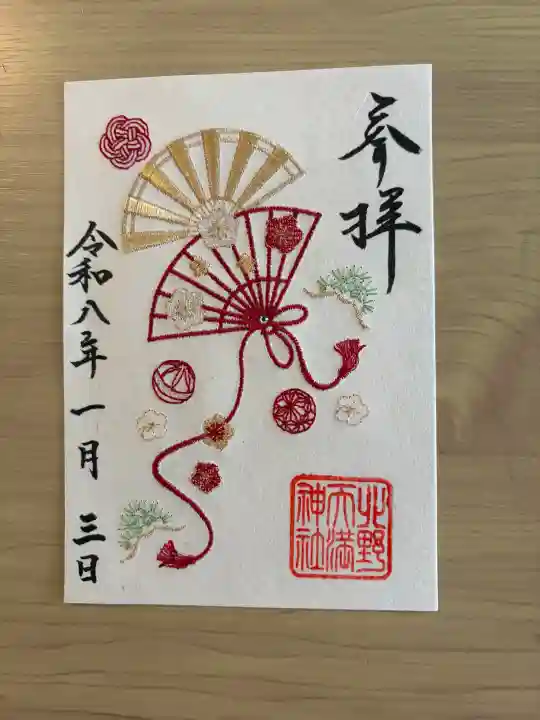 参拝
令和八年 一月 三日
北野
天満
神社